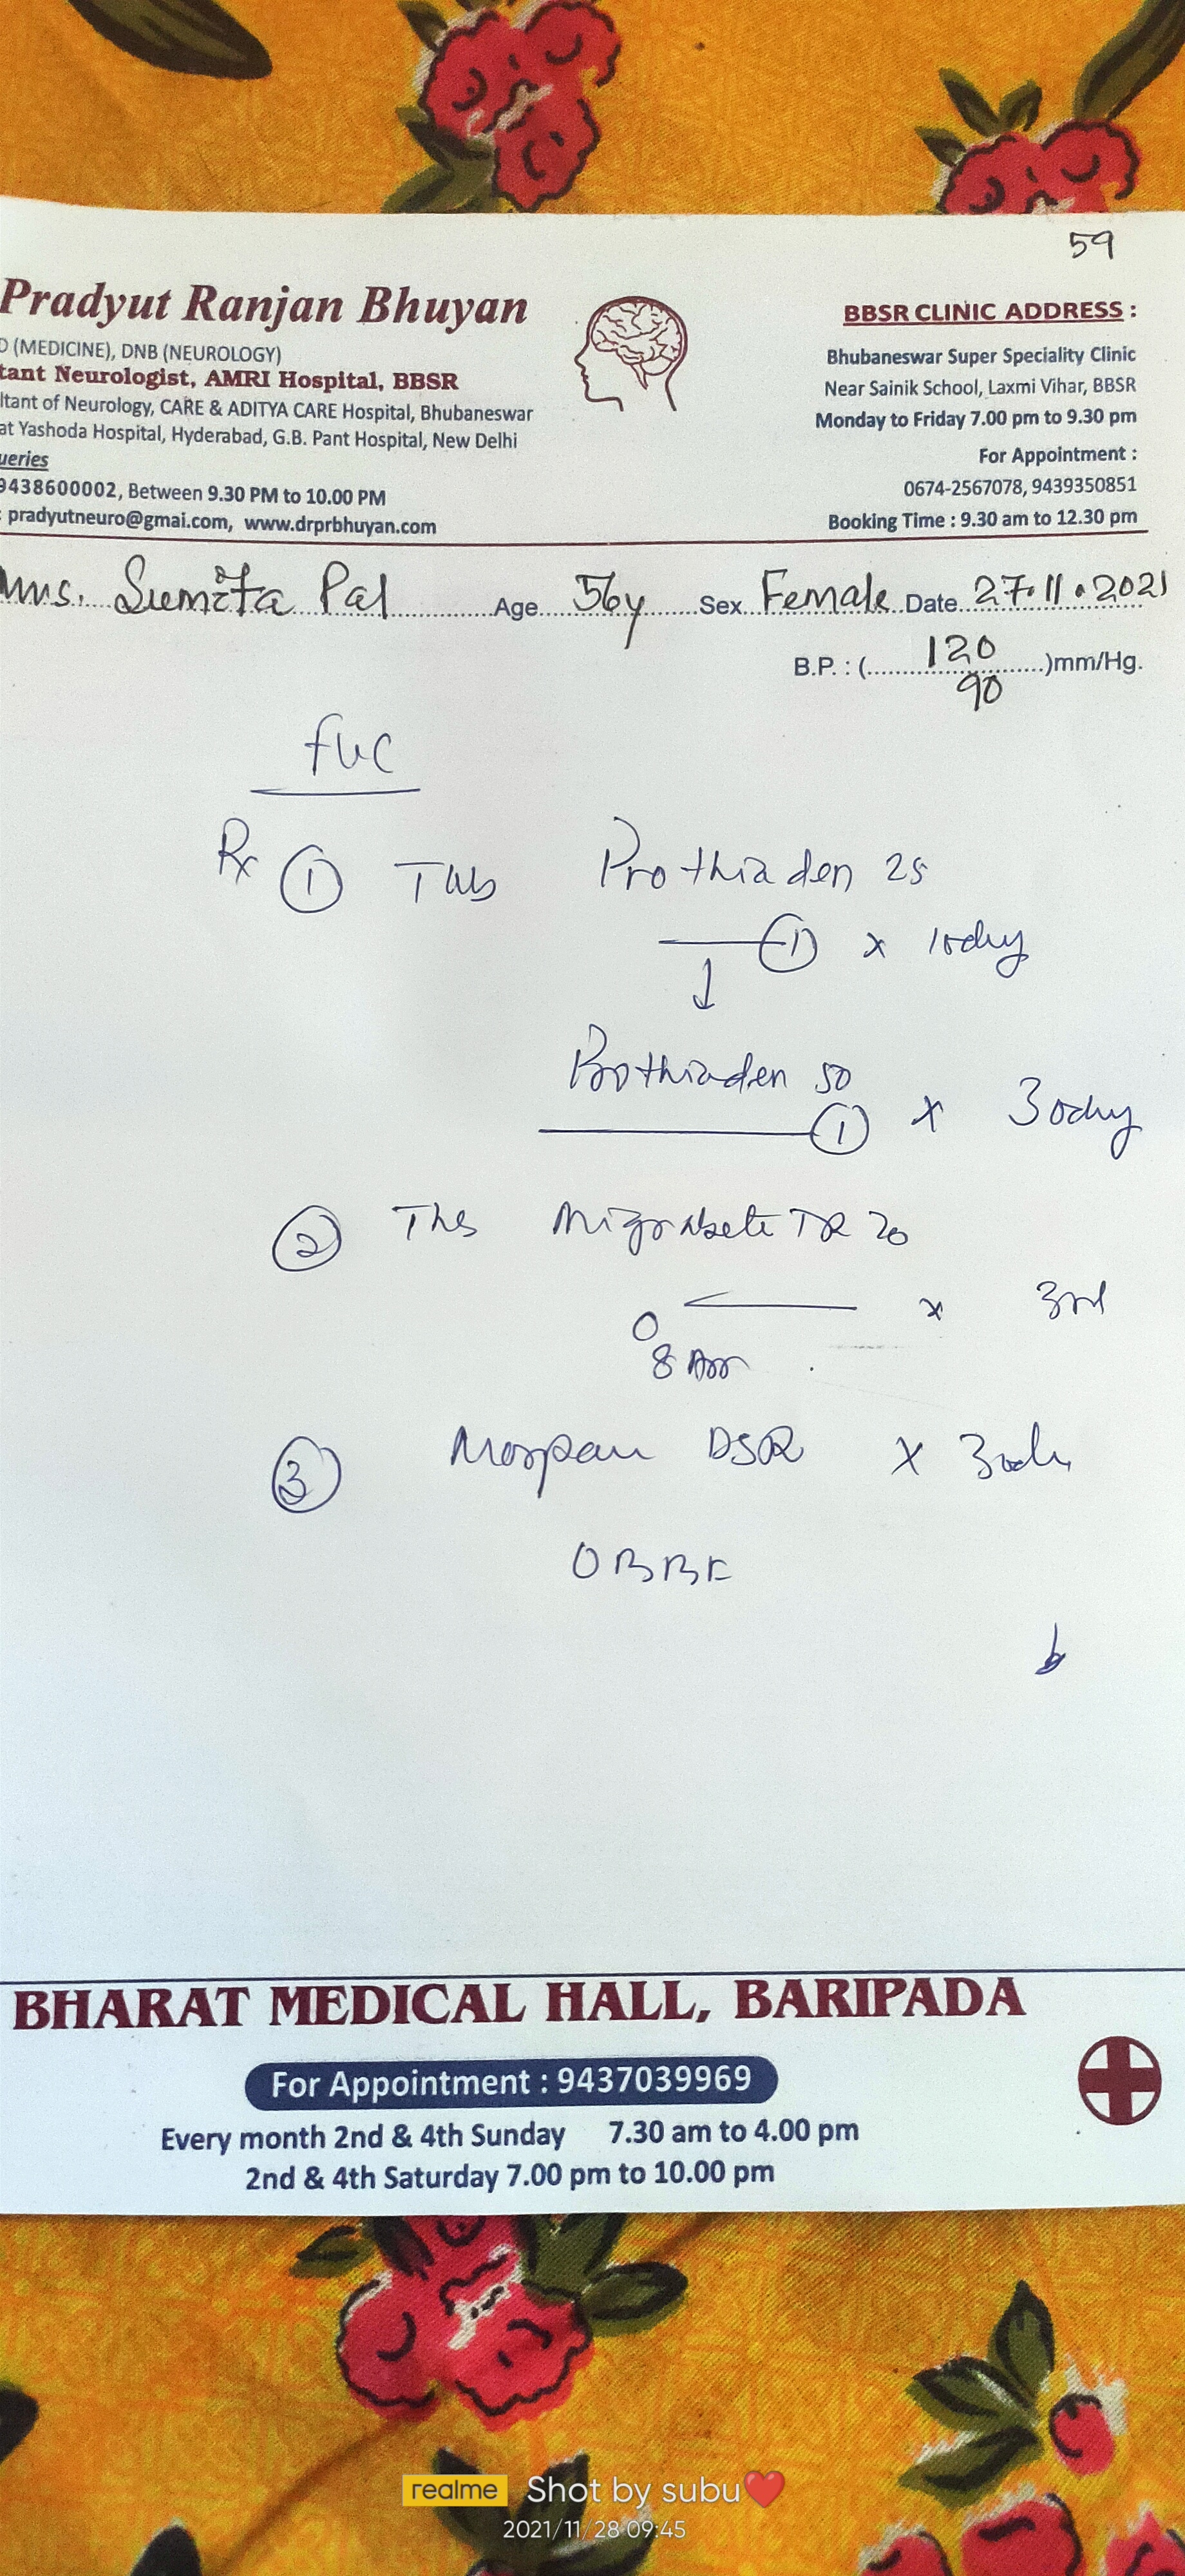 59
Pradyut Ranjan Bhuyan
D (MEDICINE), DNB (NEUROLOGY)
tant Neurologist, AMRI Hospital, BBSR
ltant of Neurology, CARE & ADITYA CARE Hospital, Bhubaneswar
at Yashoda Hospital, Hyderabad, G.B. Pant Hospital, New Delhi
ueries
9438600002, Between 9.30 PM to 10.00 PM
: pradyutneuro@gmai.com, www.drprbhuyan.com
BBSR CLINIC ADDRESS :
Bhubaneswar Super Speciality Clinic
Near Sainik School, Laxmi Vihar, BBSR
Monday to Friday 7.00 pm to 9.30 pm
For Appointment :
0674-2567078, 9439350851
Booking Time : 9.30 am to 12.30 pm
Mrs. Sumita Pal Age 56y Sex Female Date 27.11.2021
B.P. : ( 120/90 )mm/Hg.
Rx 1 Tab Prothiaden 25
1 x 10day
Prothiaden 50
1 x 30day
2 Tab TR 20
x
8
3 DSR x
OBBF
BHARAT MEDICAL HALL, BARIPADA
For Appointment : 9437039969
Every month 2nd & 4th Sunday 7.30 am to 4.00 pm
2nd & 4th Saturday 7.00 pm to 10.00 pm
realme Shot by subu❤️
2021/11/28 09:45